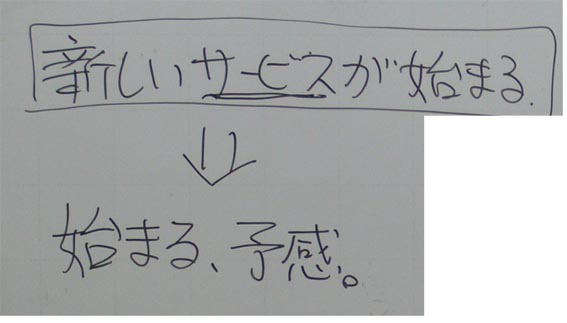 新しいサービスが始まる.
始まる、予感。